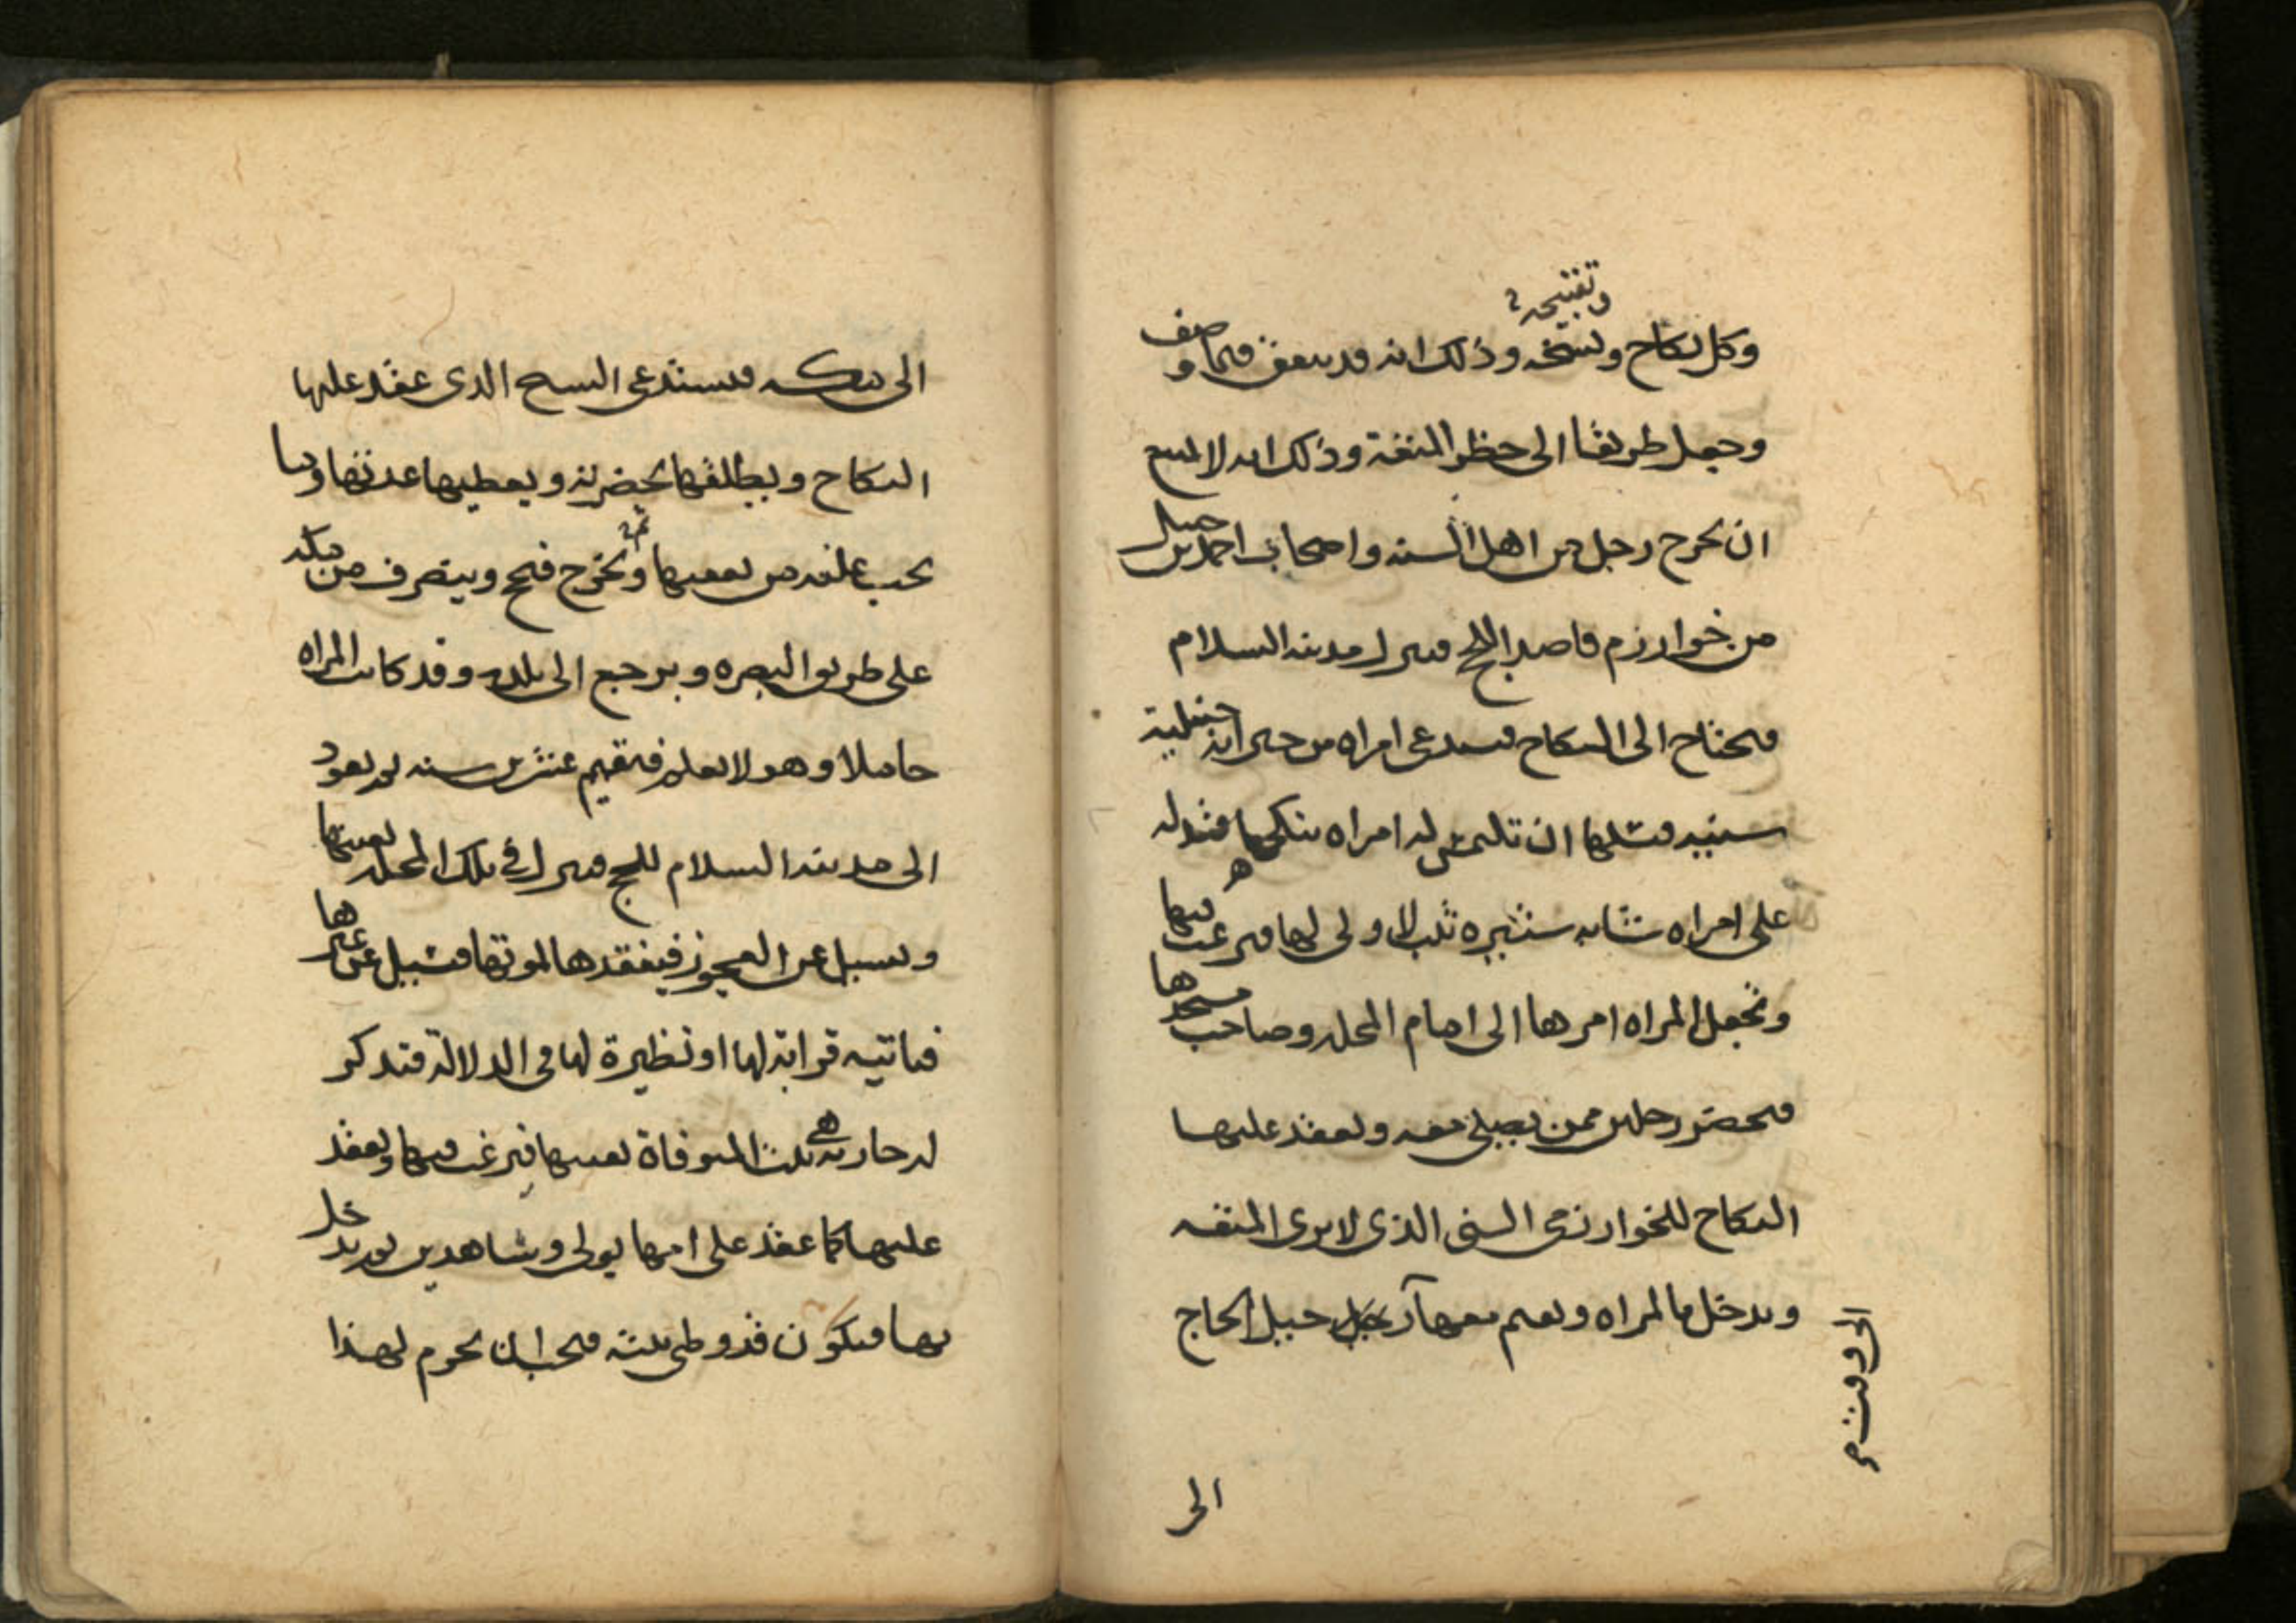 وتقبيحه
وكل نكاح ونسخه وذلك انه قد يتفق فيما وصف
وجعل طريقا الى حظر المتعة وذلك انه لا يمتنع
ان يخرج رجل من اهل السنه واصحاب احمد بن حنبل
من خوارزم قاصدا للحج فينزل مدينه السلام
فيحتاج الى النكاح فيستدعى امراه من جيرانه حنبلية
سنيه فيسئلها ان تلتمس له امراه ينكحها فتدله
على امراه شابه ستيره ثيب لا ولى لها فيرغب فيها
وتجعل المراه امرها الى امام المحله وصاحب مسجدها
فيحضر رجلين ممن يصلى معه ويعقد عليها
النكاح للخوارزمى السنى الذى لا يرى المتعه
ويدخل بالمراه ويقيم معها الى وقت رحيل الحاج
الى
الى مكه فيستدعى الشيخ الذى عقد عليها
النكاح ويطلقها بحضرته ويعطيها عدتها وما
يجب عليه من نفقتها ثم يخرج فيحج وينصرف من مكه
على طريق البصره ويرجع الى بلده وقد كانت المراه
حاملا وهو لا يعلم فيقيم عشرين سنه ثم يعود
الى مدينه السلام للحج فينزل فى تلك المحله بعينها
ويسئل عن العجوز فيفقدها لموتها فيسئل عن غيرها
فتاتيه قرابة لها او نظيرة لها فى الدلالة فتذكر
له جاريه هى بنت المتوفاة بعينها فيرغب فيها ويعقد
عليها كما عقد على امها بولى وشاهدين ثم يدخل
بها فيكون قد وطى بنته فيجب ان يحرم لهذا